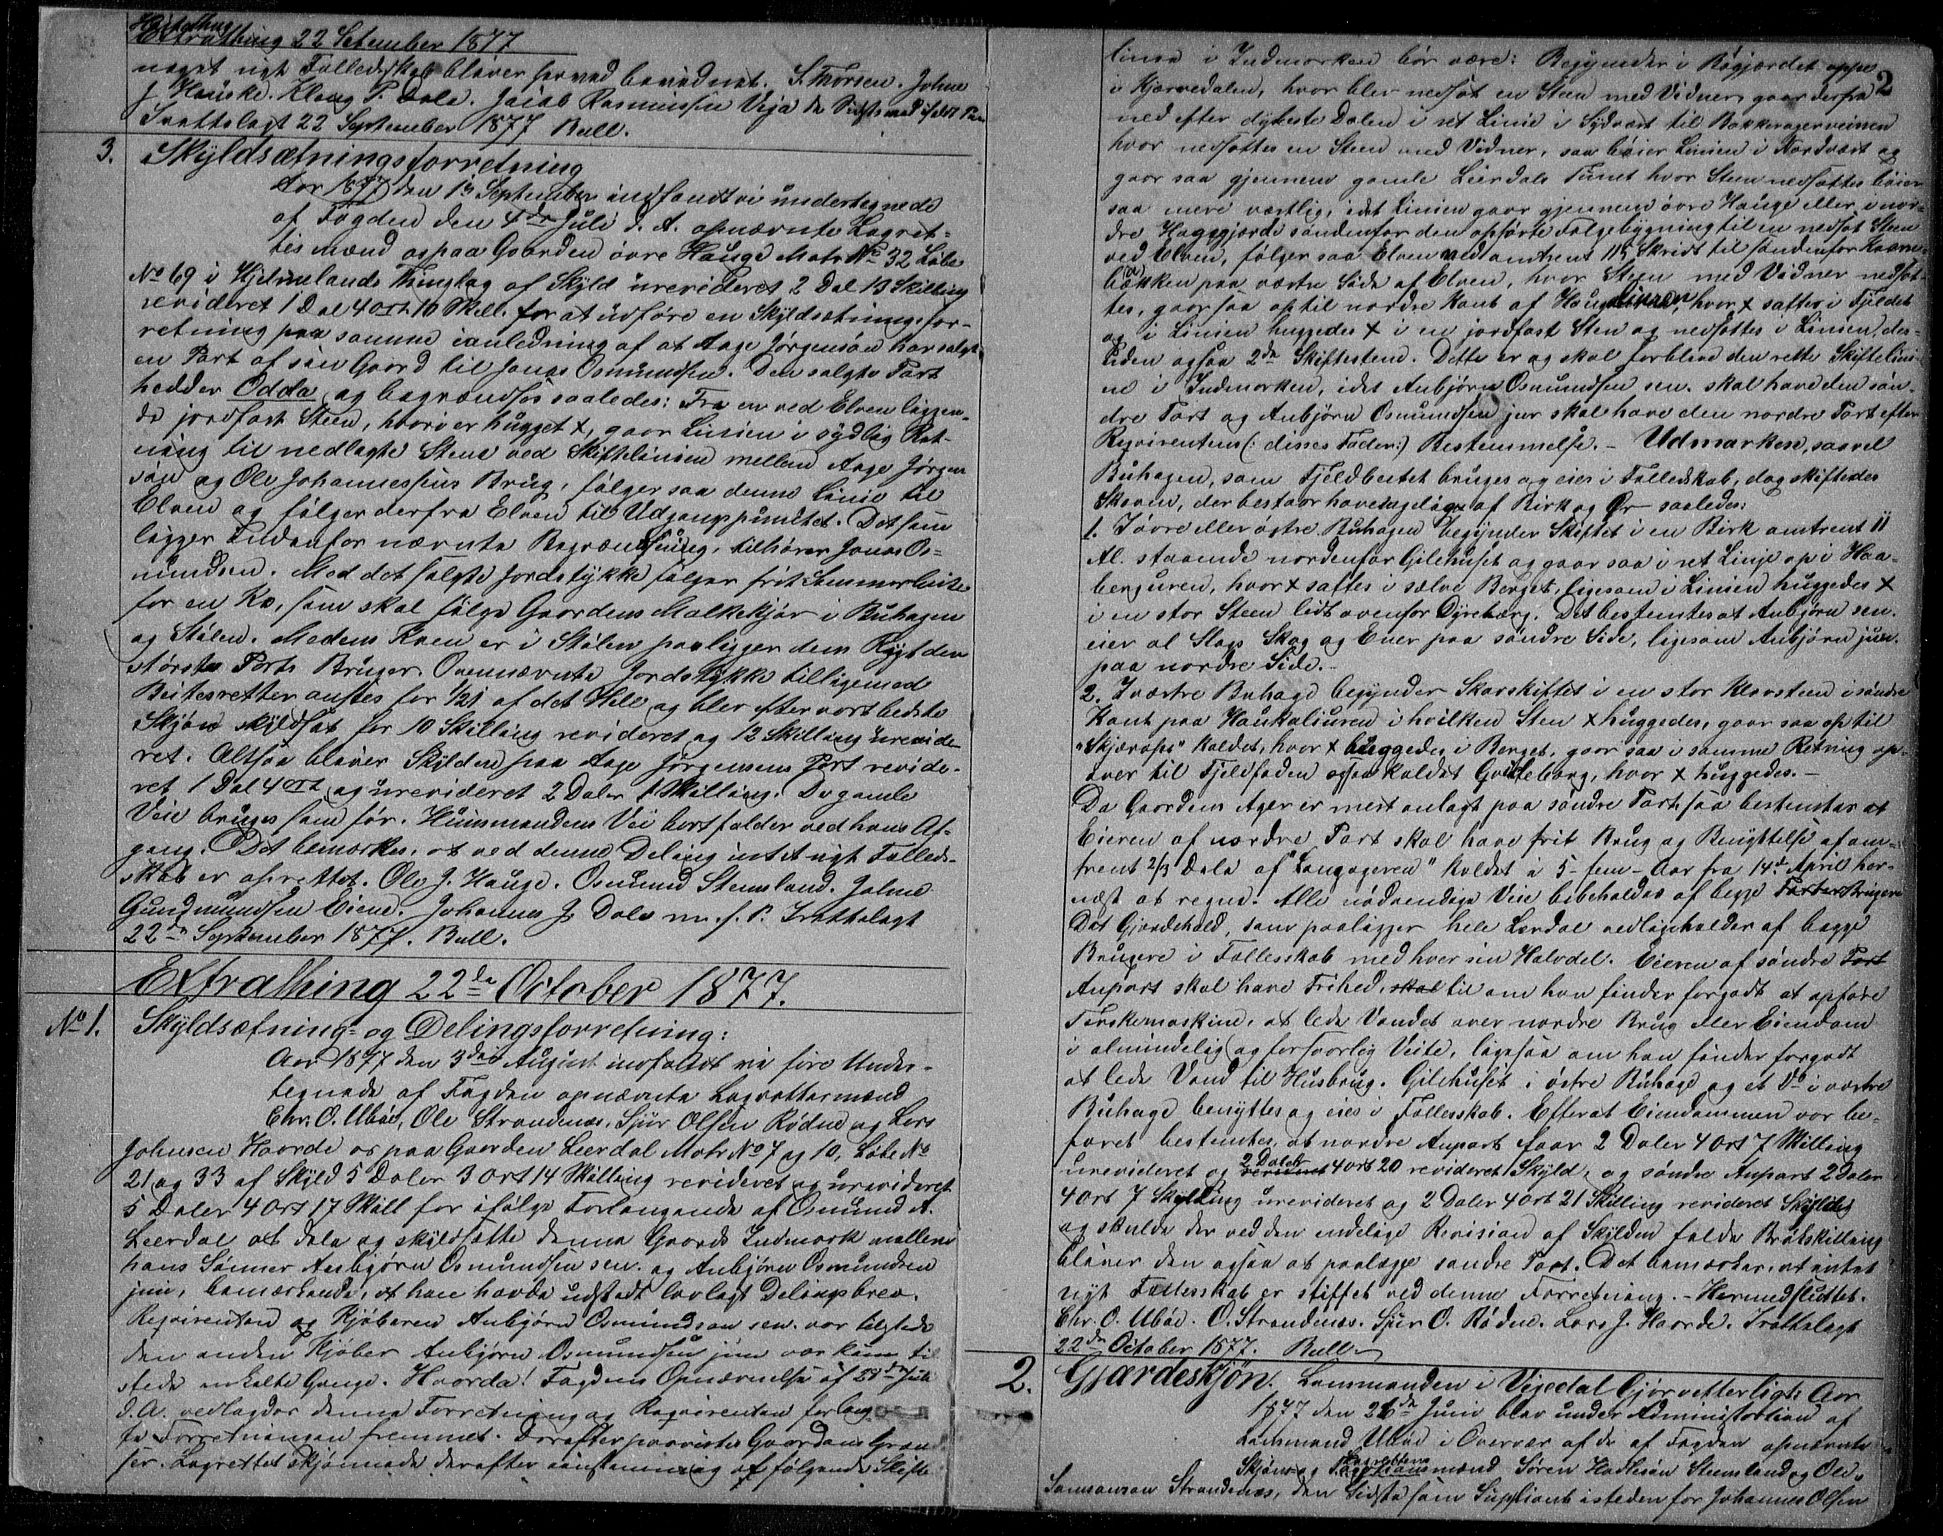 Extrathing 22 Setember 1877
noget nyt Fælledsskab bliver herved bevidnet. S. Thorsen. Johne
J. Hauske. Klaug P. Dale. Jacob Rasmussen Veja
Trættelagt 22 September 1877 Bull.
3. Skyldsætningsforretning
Aar 1877 den 13 September indfandt vi undertegnede
af Fogden den 4de Juli d. A. opnævnte Lagret-
tesmænd os paa Gaarden övre Hauge Matr No 32 Löbe
No 69 i Hjelmelands Thinglag af Skyld urevideret 2 Dal 13 Skilling
revideret 1 Dal 4 ort 10 Skill. for at udföre en Skyldsætningsfor-
retning paa samme i anledning af at Aage Jörgensön har solgt
en Part af sin Gaard til Jonas Osmundsen. Den solgte Part
hedder Odda og begrændses saaledes: Fra en ved Elven liggen-
de jordfast Steen, hvori er hugget x, gaar Linien i sydlig Ret-
ning til nedlagte Stene ved Skiftelinien mellem Aage Jörgen
sön og Ole Johannessens Brug, fölger saa denne Linie til
Elven og fölger derfra Elven til Udgangspunktet. Det som
ligger indenfor nævnte Begrændsning, tilhörer Jonas Os-
mundsen. Med det solgte Jordstykke fölger frit Sommerbeite
for en Ko, som skal fölge Gaardens Malkekjör i Buhagen
og Stölen. Medens Koen er i Stölen paaligger dens Rygt den
störste Parts Bruger. Ovennævnte Jordstykke tilligemed
Beitesretten ansees for 1/21 af det Hele og blev efter vort bedste
Skjön skyldsat for 10 Skilling revideret og 12 Skilling urevide-
ret. Altsaa bliver Skylden paa Aage Jörgensens Part revide-
ret 1 Dal 4 ort og urevideret 2 Daler 1 Skilling. De gamle
Veie bruges som för. Huusmandens Vei bortfalder ved hans Af-
gang. Det bemærkes, at ved denne Deling intet nyt Fælleds-
skab er oprettet. Ole J. Hauge. Osmund Stensland. Johne
Gundmundsen Eiene. Johannes J. Dale m. f. P. Trættelagt
22de September 1877. Bull.
Extrathing 22de October 1877.
No 1. Skyldsætning- og Delingsforretning:
Aar 1877 den 3die August indfaldt vi fire Under-
tegnede af Fogden opnævnte Lagrettesmænd
Chr. O. Uböe, Ole Strandenæs, Sjur Olsen Rödne og Lars
Johnsen Haarde os paa Gaarden Leerdal Matr No 7 og 10, Löbe No
21 og 33 af Skyld 5 Daler 3 Ort 14 Skilling revideret og urevideret
5 Daler 4 Ort 17 Skill for ifölge Forlangende af Osmund A.
Leerdal at dele og skyldsætte denne Gaards Indmark mellem
hans Sönner Anbjörn Osmundsen sen. og Anbjörn Osmundsen
jun, bemærkende, at han havde udstedt lovlagt Delingsbrev.
Reqvirenten og Kjöberen Anbjörn Osmundsen sen. var tilstede
den anden Kjöber Anbjörn Osmundsen jun var kun til
stede enkelte Gange. Fogdens Opnævnelse af 28de Juli
d. A. vedlagdes denne Forretning og Reqvirenten forlang
te Forretningen fremmet. Derefter paavistes Gaardens Græn
ser. Lagrettet skjönnede derefter eenstemmig at fölgende Skifte
2
linea i Indmarken bör være: Begynder i Rögjærdet oppe
i Kjervedalen, hvor blev nedsat en Steen med Vidner, gaar derfra
ned efter dybeste Dalen i ret Linie i Sydvest til Bakkeagerveien
hvor nedsattes en Steen med Vidner, saa böier Linien i Nordvest og
gaar saa gjennem gamle Leerdals Tunet hvor Steen nedsattes böier
saa mere vestlig, idet Linien gaar gjennem övre Hauge eller i nor-
dre Hagegjærde söndenfor den opförte Fölgebygning til en nedsat Steen
ved Elven, fölger saa Elven ved omtrent 115 Skridt til söndenfor
bækken paa vestre Side af Elven, hvor Steen med Vidner nedsat-
tes, gaar saa op til nordre Kant af hvor x sattes i Fjeldet
og i Linien huggedes x i en jordfast Sten og nedsattes i Linien des-
uden ogsaa 2de Skiftestene. Dette er og skal forblive den rette Skiftelini-
e i Indmarken, idet Anbjörn Osmundsen sen. skal have den sön-
dre Part og Anbjörn Osmundsen jun skal have den nordre Part efter
Reqvirentens (: disses Fader:) Bestemmelse. – Udmarken, saavel
Buhagen, som Fjeldbeitet bruges og eies i Fælledskab, dog skiftedes
Skoven, der bestaar hovedsagelig af Birk og Or saaledes:
1. I övre eller östre Buhagen begynder Skiftet i en Birk omtrent 11
Al. staaende nordenfor Gilehuset og gaar saa i ret Linje op i Haa-
berguren, hvor x sattes i selve Berget, ligesom i Linien huggedes x
i en stor Steen lidt ovenfor Dyreberg. Det bestemtes at Anbjörn sen.
eier al Slags Skog og Ener paa söndre Side, ligesom Anbjörn jun.
paa nordre Side. –
2. I vestre Buhage begynder Skovskiftet i en stor Klovsteen i söndre
Kant paa Haukaliuren i hvilken Sten x huggedes, gaar saa op til
"Skjærops" kaldet, hvor x huggedes i Berget, gaar saa i samme Retning op-
over til Fjeldfoden ogsaa kaldet Gvitteberg, hvor x huggedes. –
Da Gaardens Ager er mest anlagt paa söndre Part, saa bestemtes at
Eieren af nordre Part skal have frit Brug og Benyttelse af om-
trent 2/3 Dele af "Langageren" kaldet i 5 – fem – Aar fra 14de April her-
næst at regne. Alle nödvendige Veie bibeholdes af begge Parters Brugere
Det Gjærdehold, som paaligger hele Lerdal vedligeholdes af begge
Brugere i Fællesskab med hver sin Halvdel. Eieren af söndre Part
Anpart skal have Frihed, skal til om han finder forgodt at opföre
Tærskemaskine, at lede Vandet over nordre Brug eller Eiendom
i almindelig og forsvarlig Veite, ligesaa om han finder forgodt
at lede Vand til Husbrug. Gilehuset i östre Buhage og et Do i vestre
Buhage benyttes og eies i Fællesskab. Efterat Eiendommen var be-
faret bestemtes, at nordre Anpart faar 2 Daler 4 Ort 7 Skilling
urevideret og 2 Daler 4 ort 20 revideret Skyld, og söndre Anpart 2 Daler
4 Ort 7 Skilling urevideret og 2 Daler 4 Ort 21 Skilling revideret Skyld
og skulde der ved den endelige Revision af Skylden falde Brökskilling
bliver den ogsaa at paalægge söndre Part. Det bemærkes, at intet
nyt Fællesskab er stiftet ved denne Forretning. – Hermed sluttet.
Chr. O. Uböe. O. Strandenæs. Sjur O. Rödne. Lars J. Haarde. Trættelagt
22de October 1877. Bull
2. Gjærdeskjön. Lensmanden i Vigedal Gjör vetterligt: Aar
1877 den 26de Juni blev under Administration af
Lensmand Uböe i Overvær af de af Fogden opnævnte
Skjöns og Lagrettesmænd Sören Stensland og Ole
Samsonsen Strandenæs, den Sidste som Supliant isteden for Johannes Olsen